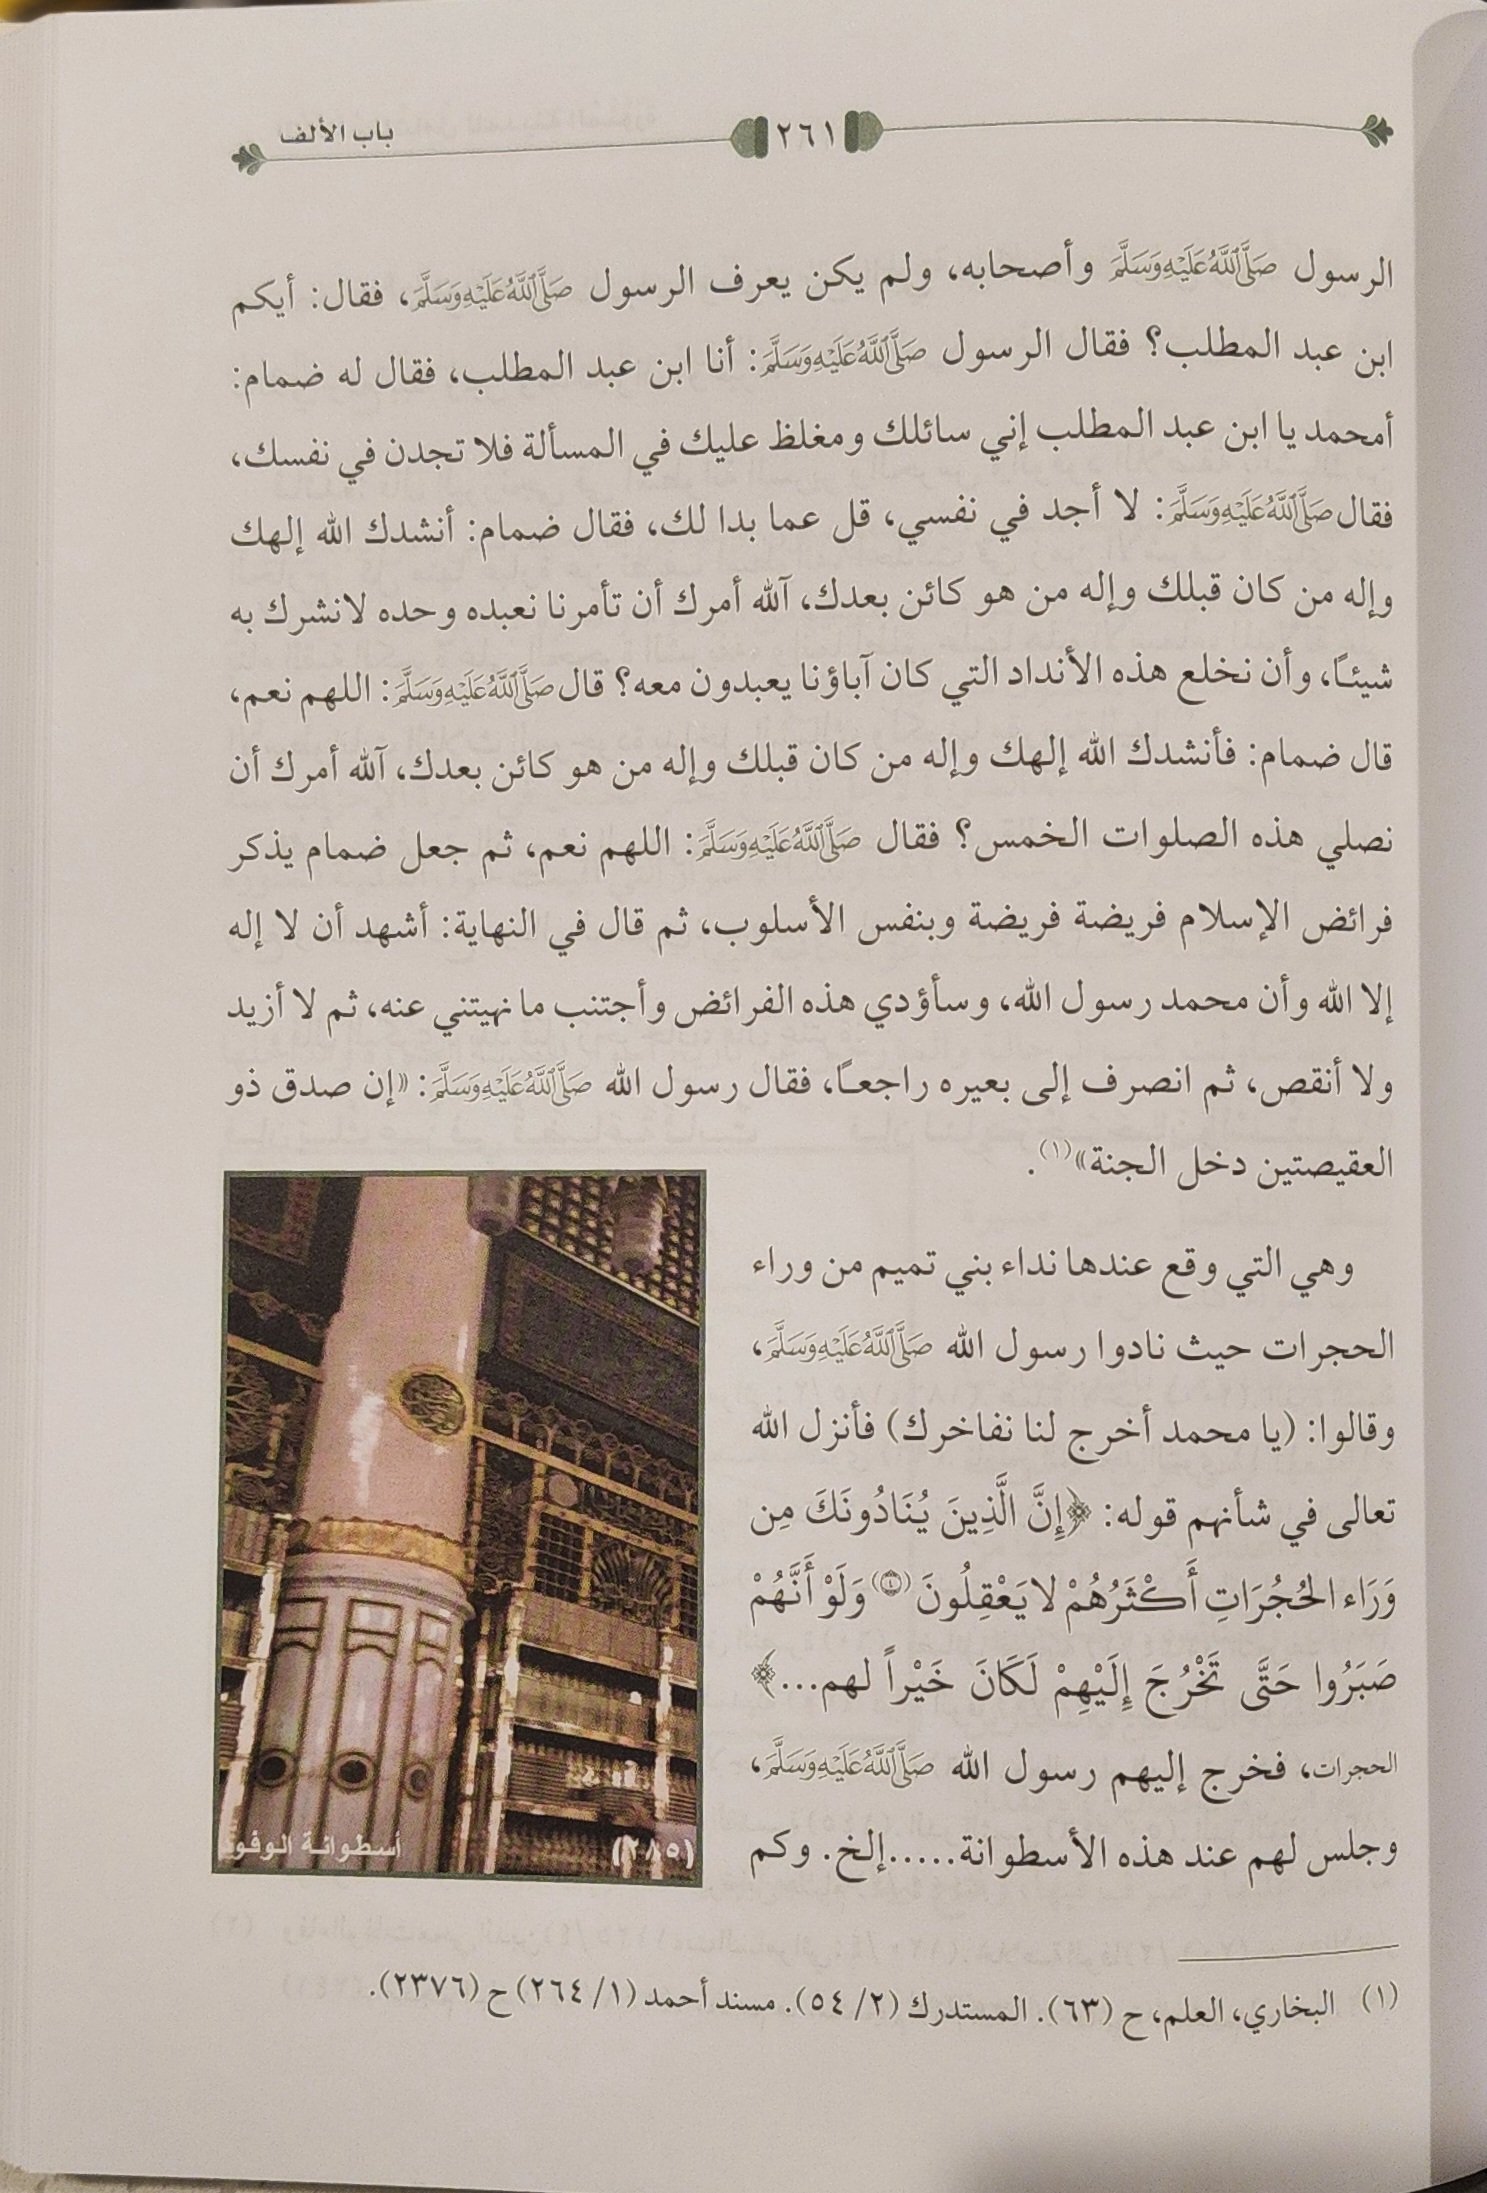 باب الألف
٢٦١
الرسول صَلَّىاللَّهُعَلَيْهِوَسَلَّمَ وأصحابه، ولم يكن يعرف الرسول صَلَّىاللَّهُعَلَيْهِوَسَلَّمَ، فقال: أيكم
ابن عبد المطلب؟ فقال الرسول صَلَّىاللَّهُعَلَيْهِوَسَلَّمَ: أنا ابن عبد المطلب، فقال له ضمام:
أمحمد يا ابن عبد المطلب إني سائلك ومغلظ عليك في المسألة فلا تجدن في نفسك،
فقال صَلَّىاللَّهُعَلَيْهِوَسَلَّمَ: لا أجد في نفسي، قل عما بدا لك، فقال ضمام: أنشدك الله إلهك
وإله من كان قبلك وإله من هو كائن بعدك، آلله أمرك أن تأمرنا نعبده وحده لانشرك به
شيئًا، وأن نخلع هذه الأنداد التي كان آباؤنا يعبدون معه؟ قال صَلَّىاللَّهُعَلَيْهِوَسَلَّمَ: اللهم نعم،
قال ضمام: فأنشدك الله إلهك وإله من كان قبلك وإله من هو كائن بعدك، آلله أمرك أن
نصلي هذه الصلوات الخمس؟ فقال صَلَّىاللَّهُعَلَيْهِوَسَلَّمَ: اللهم نعم، ثم جعل ضمام يذكر
فرائض الإسلام فريضة فريضة وبنفس الأسلوب، ثم قال في النهاية: أشهد أن لا إله
إلا الله وأن محمد رسول الله، وسأؤدي هذه الفرائض وأجتنب ما نهيتني عنه، ثم لا أزيد
ولا أنقص، ثم انصرف إلى بعيره راجعًا، فقال رسول الله صَلَّىاللَّهُعَلَيْهِوَسَلَّمَ: «إن صدق ذو
العقيصتين دخل الجنة»(١).
وهي التي وقع عندها نداء بني تميم من وراء
الحجرات حيث نادوا رسول الله صَلَّىاللَّهُعَلَيْهِوَسَلَّمَ،
وقالوا: (يا محمد أخرج لنا نفاخرك) فأنزل الله
تعالى في شأنهم قوله: ﴿إِنَّ الَّذِينَ يُنَادُونَكَ مِن
وَرَاء الحُجُرَاتِ أَكْثَرُهُمْ لا يَعْقِلُونَ (٤) وَلَوْ أَنَّهُمْ
صَبَرُوا حَتَّى تَخْرُجَ إِلَيْهِمْ لَكَانَ خَيْراً لهم...﴾
الحجرات، فخرج إليهم رسول الله صَلَّىاللَّهُعَلَيْهِوَسَلَّمَ،
وجلس لهم عند هذه الأسطوانة.....إلخ. وكم
(٢٨٥) أسطوانة الوفود
(١) البخاري، العلم، ح (٦٣). المستدرك (٢/ ٥٤). مسند أحمد (١/ ٢٦٤) ح (٢٣٧٦).